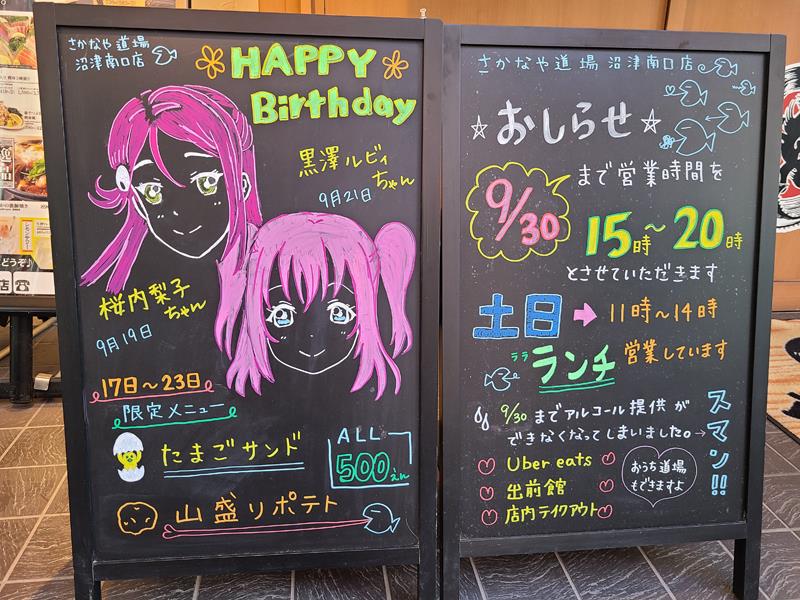 さかなや道場
沼津南口店
HAPPY
Birthday
黒澤ルビィ
ちゃん
9月21日
桜内梨子
ちゃん
9月19日
17日〜23日
限定メニュー
たまごサンド
ALL
500えん
山盛りポテト
さかなや道場 沼津南口店
☆おしらせ☆
9/30 まで営業時間を
15時〜20時
とさせていただきます
土日➡11時〜14時
ララ
ランチ営業しています
9/30までアルコール提供が
できなくなってしまいました。→
スマン!!
Uber eats
出前館
店内テイクアウト
おうち道場
もできますよ
どうぞ♪
店